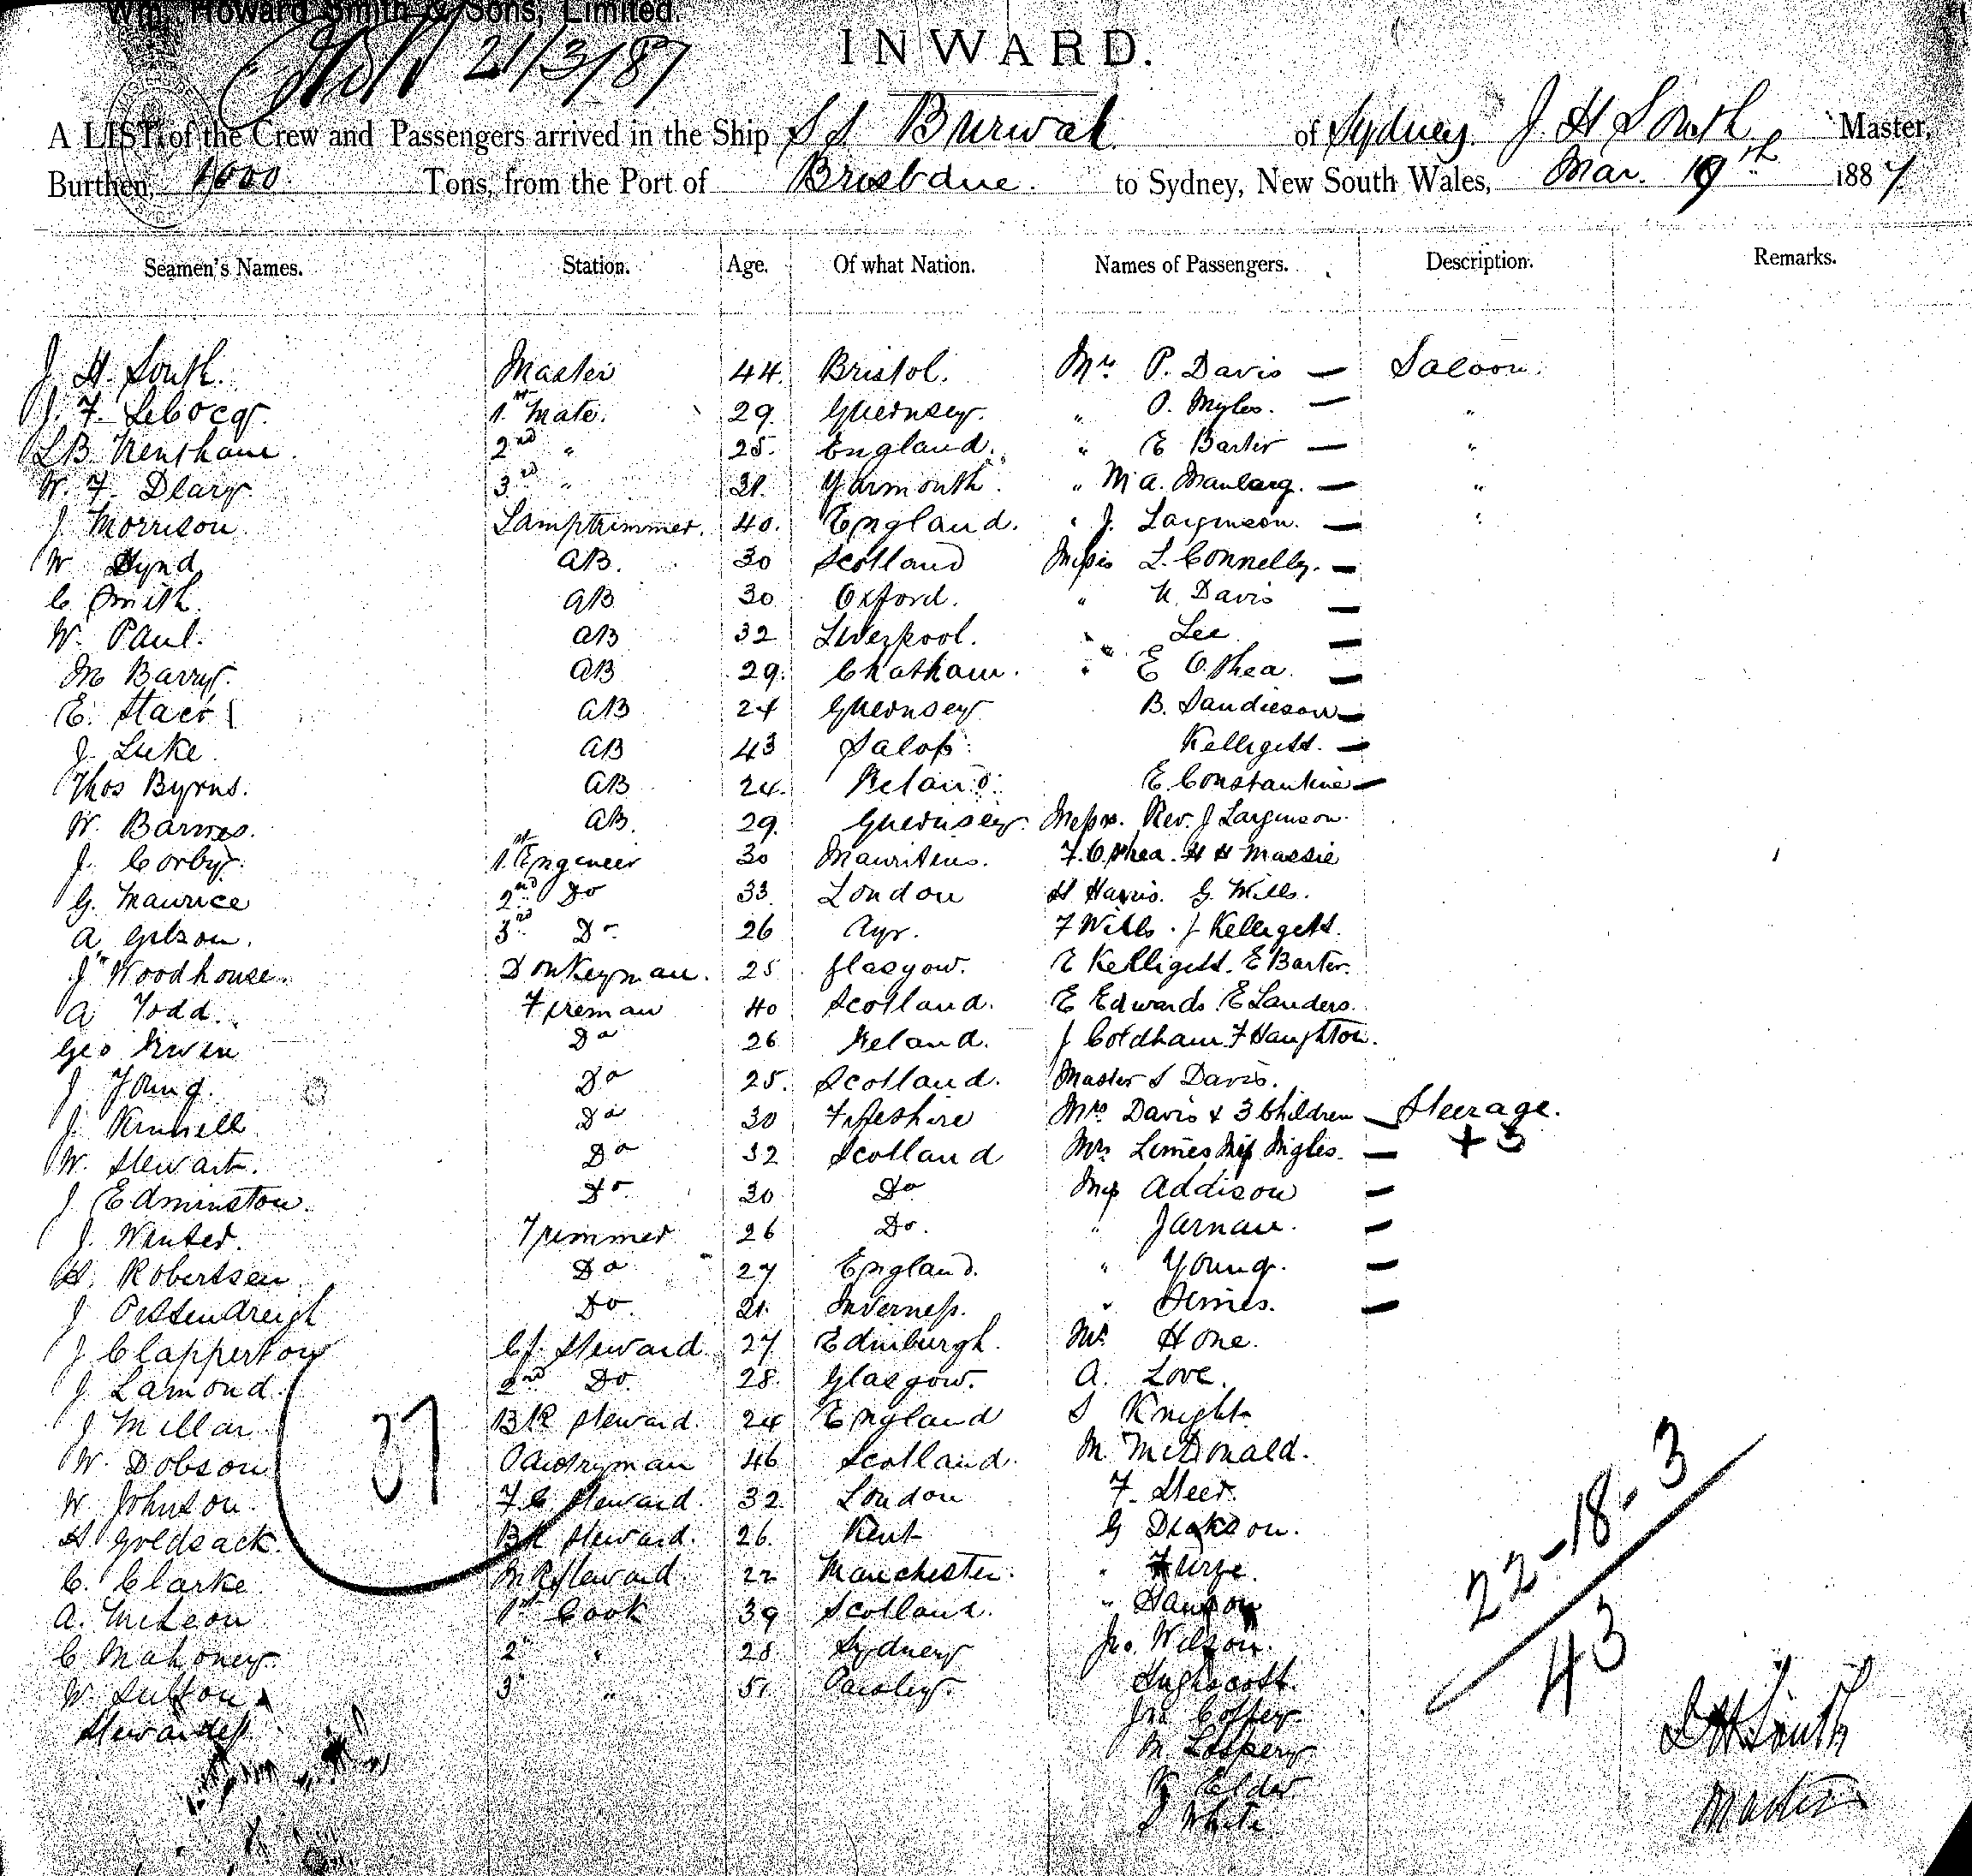 Wm. Howard Smith & Sons, Limited.
21/3/87
INWARD.
A LIST of the Crew and Passengers arrived in the Ship S S Burwah of Sydney. J. H South Master,
Burthen, 1000 Tons, from the Port of Brisbane. to Sydney, New South Wales, Mar. 19th 1887
Seamen's Names. Station. Age. Of what Nation. Names of Passengers. Description. Remarks.
J. H. South. Master 44. Bristol. Mrs. P. Davis — Saloon.
J. F. LeCocq. 1.st Mate. 29. Guernsey. " O. Myles. — "
L B Trenham 2nd " 25. England. " E Barter — "
W. F. Deary 3rd " 21. Yarmouth. " M A. — "
J Morrison Lamptrimmer. 40. England. " J. Larginson. — "
W Hynd AB. 30 Scotland Misses L. Connelly. —
C. Smith. AB 30 Oxford. " N. Davis —
W. Paul. AB 32 Liverpool. " Lee —
M Barry. AB 29. Chatham. " E O'Shea. —
E. AB 24 Guernsey B. Sandieson —
J. Luke. AB 43 Salop. Kelligett. —
Thos Byrns. AB 24. Ireland. E. Constantine —
W. Barnes. AB. 29. Guernsey. Messrs. Rev. J Larginson.
J. Corby. 1.st Engineer 30 Mauritius. F. O'Shea. H H Massie
G. Maurice 2nd Do 33. London H Harris. G. Wills.
A Gibson. 3rd Do. 26 Ayr. F Wills. J Kelligett.
J Woodhouse. Donkeyman. 25 Glasgow. E Kelligett. E Barter.
A Todd. Fireman 40 Scotland. E Edwards. E Landers.
Geo Irwin Do 26 Ireland. J Coldham. F Haughton.
J Young. Do 25. Scotland. Master S Davis.
J. Do 30 Fifeshire Mrs Davis & 3 Children — Steerage.
W. Stewart. Do 32 Scotland Mrs Miss — + 3
J. Edminston. Do. 30 Do Miss Addison —
J. Trimmer 26 Do. " Jarnan. —
H. Robertson. Do 27 England. " Young. —
J Do 21. Inverness. " —
J Clapperton Cf. Steward 27 Edinburgh. Mr. Hone.
J. Lamond. 2nd Do. 28. Glasgow. A. Love.
J Millar BR Steward. 24 England S Knight.
W. Dobson Pantryman 46 Scotland. M McDonald.
W Johnson. F.C. Steward. 32 London F. Steer.
H Goldsack. BR Steward. 26. Kent G Dickson.
C. Clarke MR Steward 22 Manchester. " Furze.
A. McLeon 1st Cook 39 Scotland. "
C Mahoney. 2nd " 28 Sydney Jno. Wilson.
W. Sutton 3rd " 51 Paisley.
Stewardess. Jno Coffey.
37
M
Elder
S White
22-18-3
43
J H South
Master